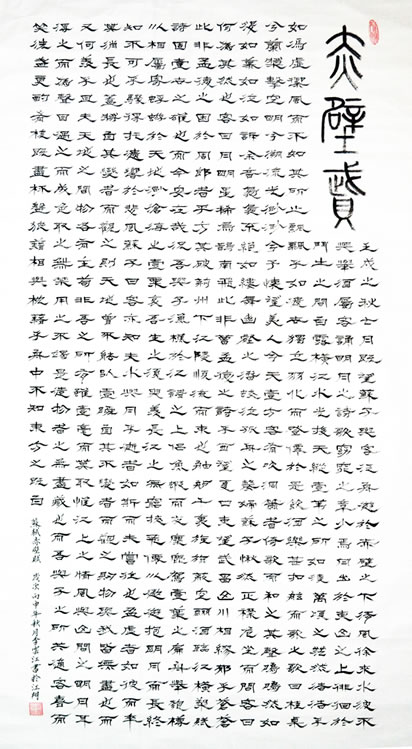 赤壁賦
壬戌之秋七月既望蘇子與客泛舟遊於赤壁之下清風徐來水波不
興舉酒屬客誦明月之詩歌窈窕之章少焉月出於東山之上徘徊於
鬥牛之間白露橫江水光接天縱壹葦之所如淩萬頃之茫然浩浩乎
如馮虛禦風而不知其所止飄飄乎如遺世獨立羽化而登仙於是飲酒樂甚扣舷而歌之歌曰桂棹
兮蘭槳擊空明兮溯流光渺渺兮予懷望美人兮天壹方客有吹洞簫者倚歌而和之其聲嗚嗚然如怨如
慕如泣如訴餘音裊裊不絕如縷舞幽壑之潛蛟泣孤舟之嫠婦蘇子愀然正襟危坐而問客曰
何為其然也客曰月明星稀烏鵲南飛此非曹孟德之詩乎西望夏口東望武昌山川相繆郁乎蒼蒼
此非孟德之困於周郎者乎方其破荊州下江陵順流而東也舳艫千里旌旗蔽空釃酒臨江橫槊賦
詩固壹世之雄也而今安在哉況吾與子漁樵於江渚之上侶魚蝦而友麋鹿駕壹葉之扁舟舉匏樽
以相屬寄蜉蝣於天地渺滄海之壹粟哀吾生之須臾羨長江之無窮挾飛仙以遨遊抱明月而長終
知不可乎驟得托遺響於悲風蘇子曰客亦知夫水與月乎逝者如斯而未嘗往也盈虛者如彼而卒
莫消長也蓋將自其變者而觀之則天地曾不能以壹瞬自其不變者而觀之則物與我皆無盡也而
又何羨乎且夫天地之間物各有主苟非吾之所有雖壹毫而莫取惟江上之清風與山間之明月耳
得之而為聲目遇之而成色取之無禁用之不竭是造物者之無盡藏也而吾與子之所共適客喜而
笑洗盞更酌肴核既盡杯盤狼籍相與枕藉乎舟中不知東方之既白
蘇軾赤壁賦
歲次丙申年秋月李雲江書於江